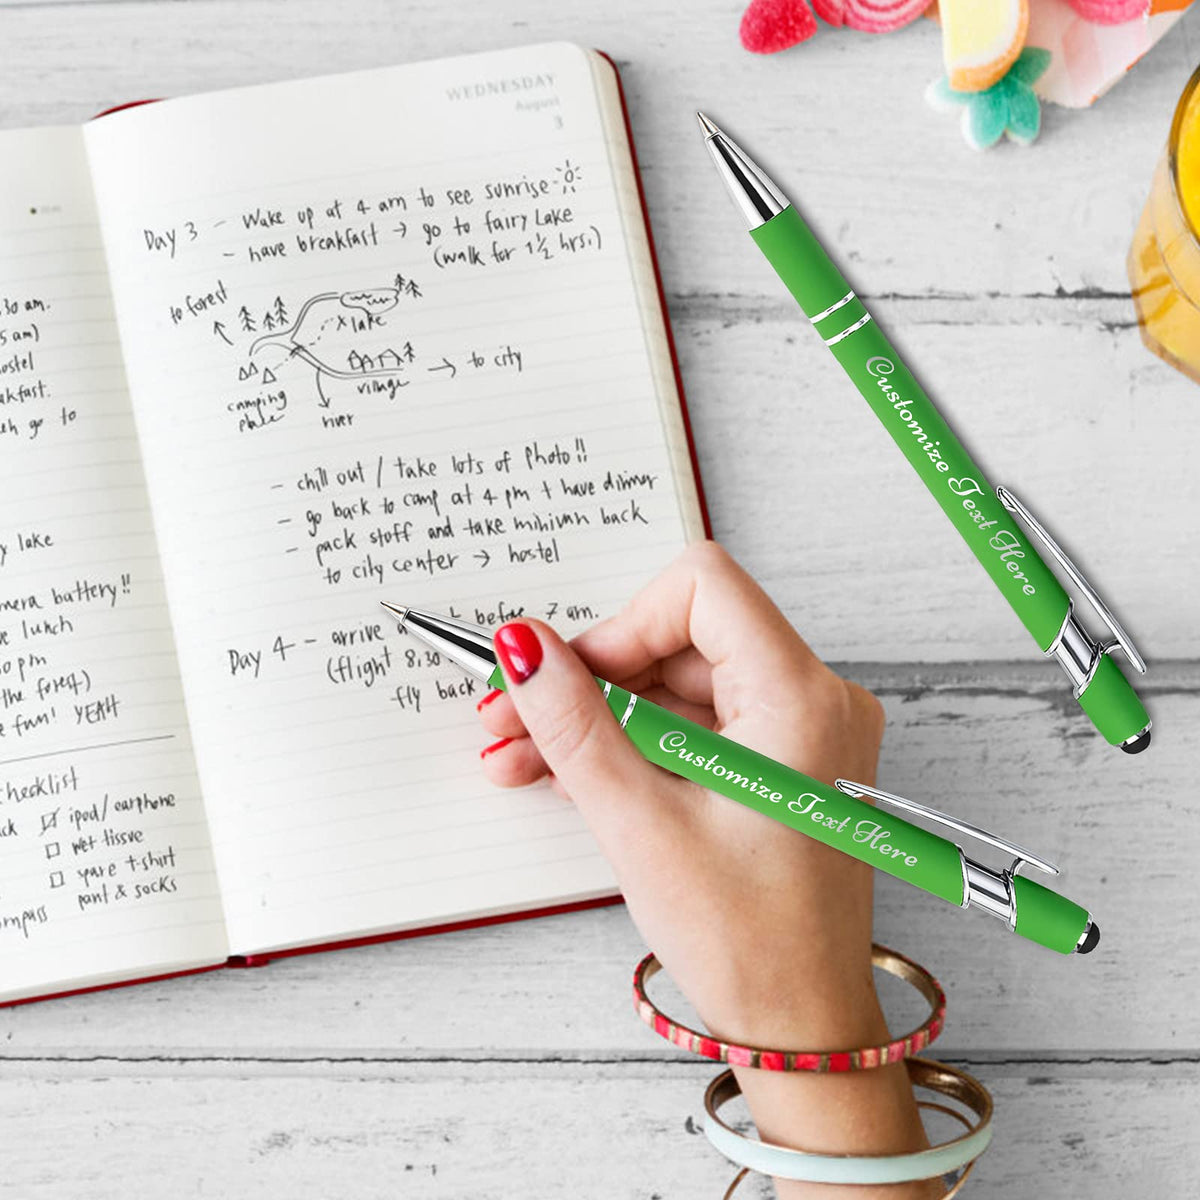 WEDNESDAY
August
3
Day 3 - Wake up at 4 am to see sunrise
- have breakfast → go to fairy Lake
(walk for 1½ hrs.)
to forest
x lake
→ to city
village
camping
place
river
- chill out / take lots of photo!!
- go back to camp at 4 pm + have dinner
- pack stuff and take minivan back
to city center → hostel
Day 4 - arrive before 7 am.
(flight 8,30
fly back
30 am.
5 am)
go to
lake
battery!!
lunch
pm
the forest)
fun! YEAH
checklist
ipod/earphone
wet tissue
spare t-shirt
pant & socks
Customize Text Here
Customize Text Here